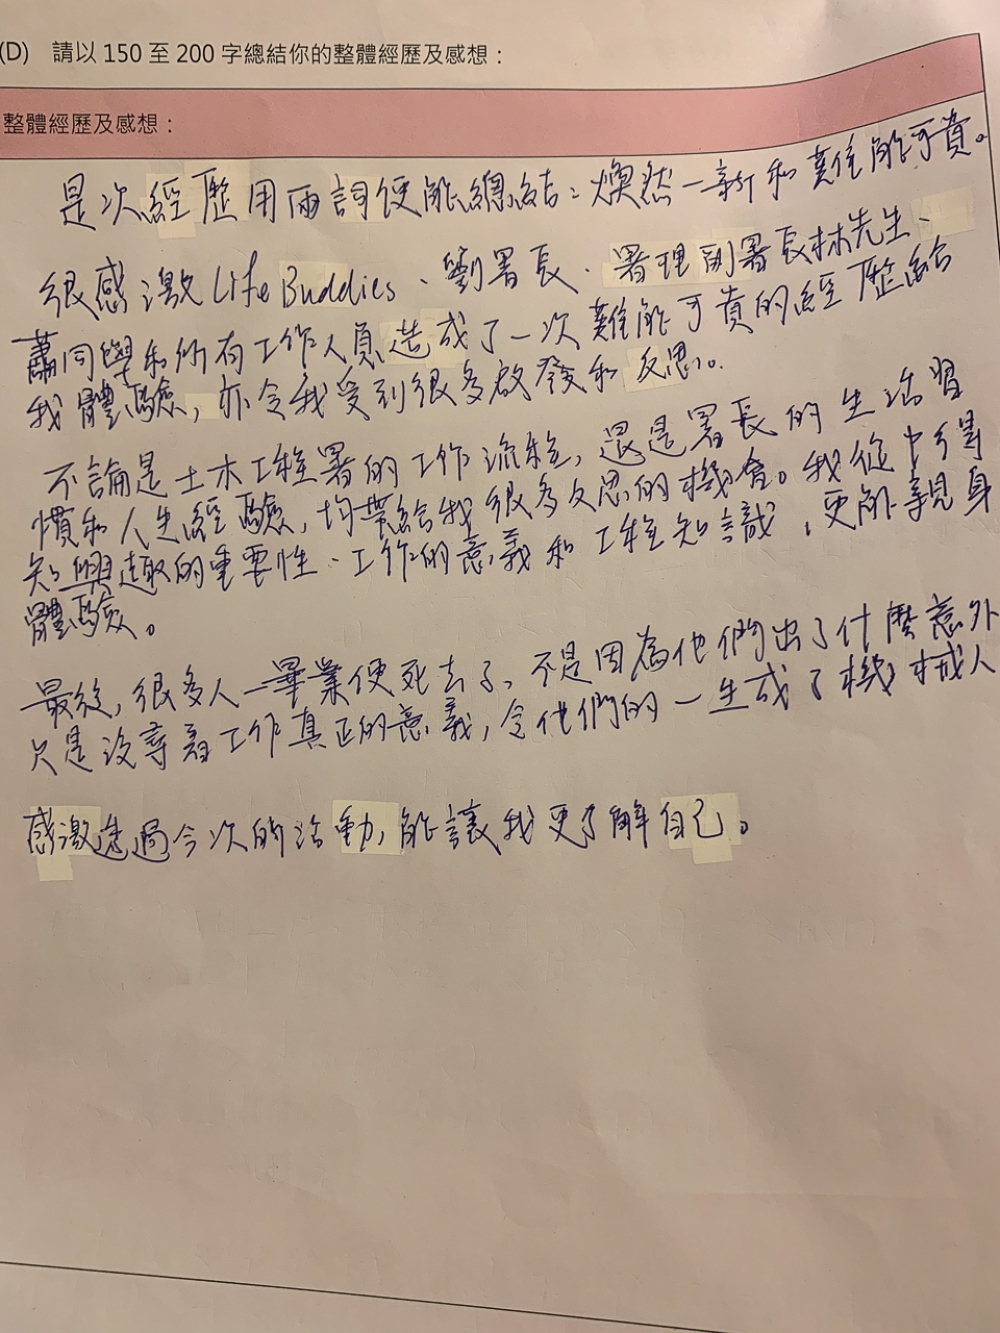 (D) 請以 150 至 200 字總結你的整體經歷及感想：
整體經歷及感想：
是次經歷用兩詞便能總結：煥然一新和難能可貴。
很感激 Life Buddies、劉署長、署理副署長林先生、
蕭同學和所有工作人員造成了一次難能可貴的經歷給
我體驗，亦令我受到很多啟發和反思。
不論是土木工程署的工作流程，還是署長的生活習
慣和人生經驗，均帶給我很多反思的機會。我從中得
知興趣的重要性、工作的意義和工程知識，更能親身
體驗。
最後，很多人一畢業便死去了，不是因為他們出了什麼意外
只是沒尋着工作真正的意義，令他們的一生成了機械人
感激透過今次的活動，能讓我更了解自己。